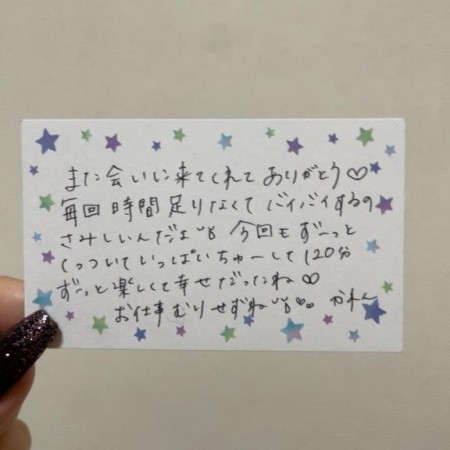 また会いに来てくれてありがとう♡
毎回時間足りなくてバイバイするの
さみしいんだよ 今回もずーっと
くっついていっぱいちゅーして120分
ずーっと楽しくて幸せだったね♡
お仕事むりせずね かれん